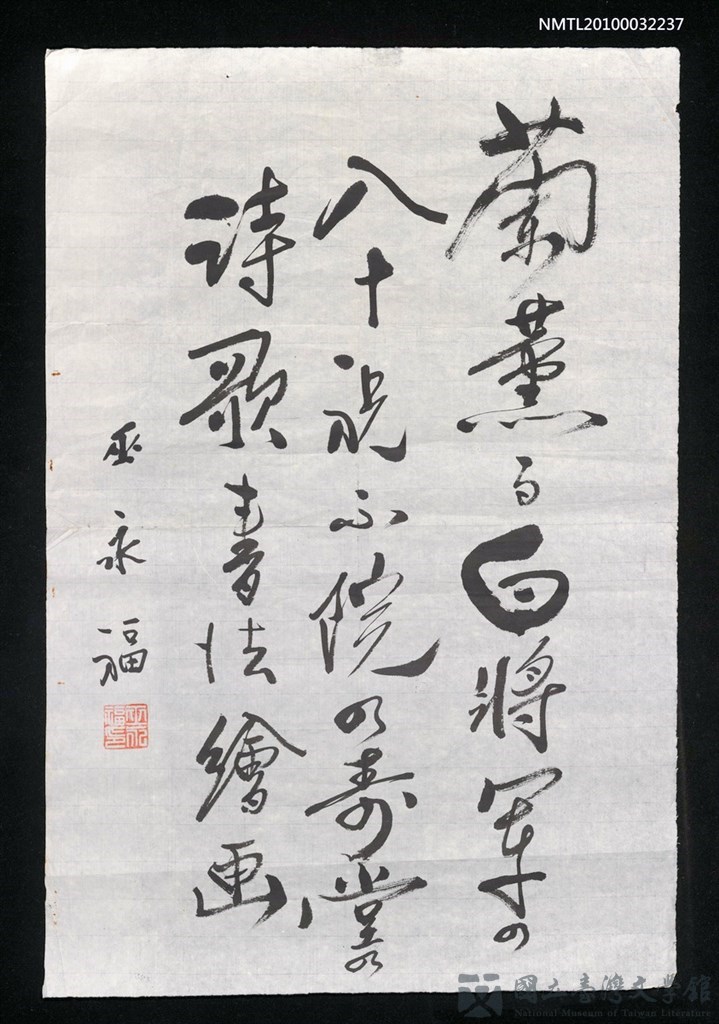 NMTL20100032237
蘭薫る白將軍の
八十祝ふ院の壽堂の
詩歌書法繪画
巫永福
國立臺灣文學館
National Museum of Taiwan Literature